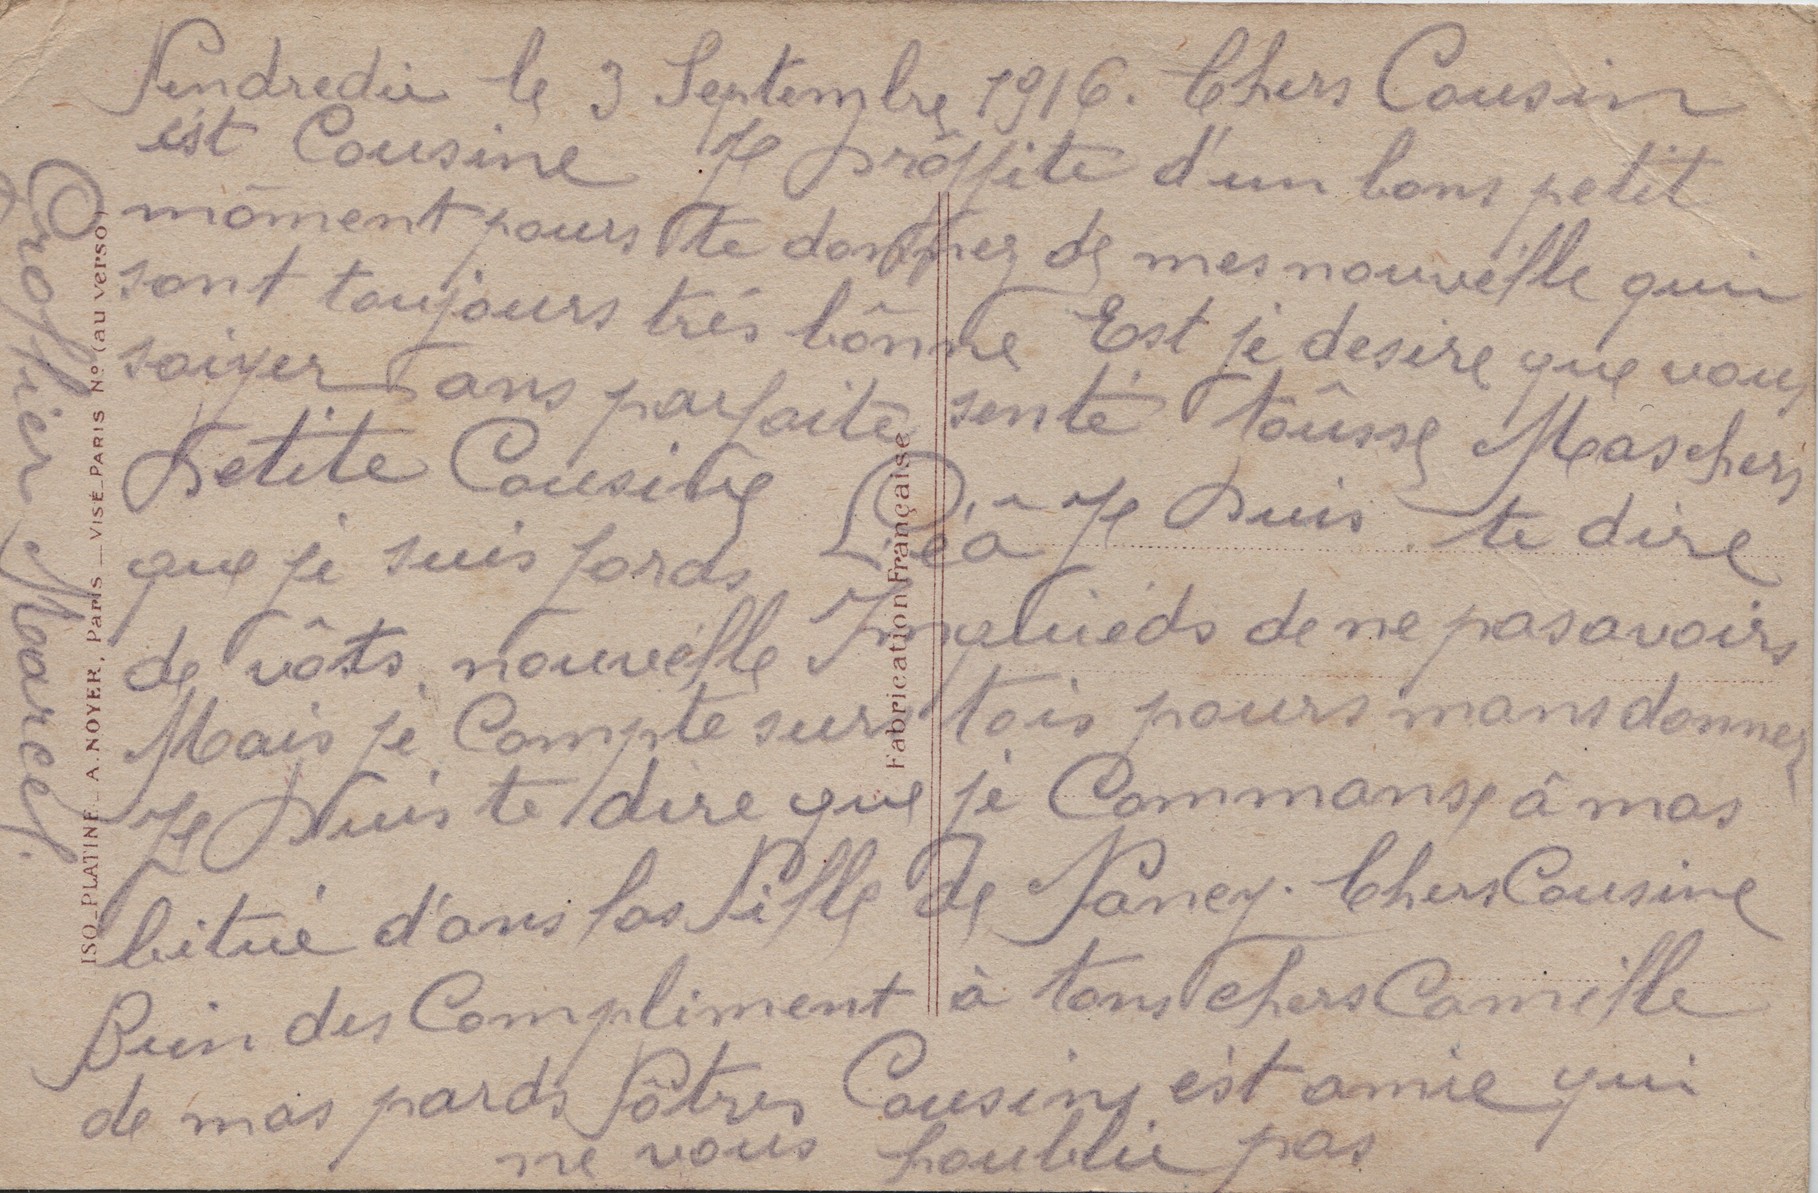 Vendredie le 3 Septembre 1916. Chers Cousin
ést Cousine Je prôffite d'un bons petit
môment pours te donnez de mes nouvéllle quie
sont toujours trés bônne Est je desire que vous
soiyer dans parfaite senté tôusse Mas chers
petite Cousine Léâ Je puis te dire
que je suis fords
de vôts nouvélle de ne pas avoirs
Mais je Compte surs tois pours mans donnez
Je puis te dire que je Commanse â mas
bitué d'ans las Ville de Nancy. Chers Cousine
Bien des Compliment à tons chers Camille
de mas pards Vôtres Cousin ést amie qui
ne vous houblie pas
Croffier Marcel.
ISO_PLATINE_A. NOYER, Paris _ VISÉ_PARIS No (au verso)
Fabrication Française